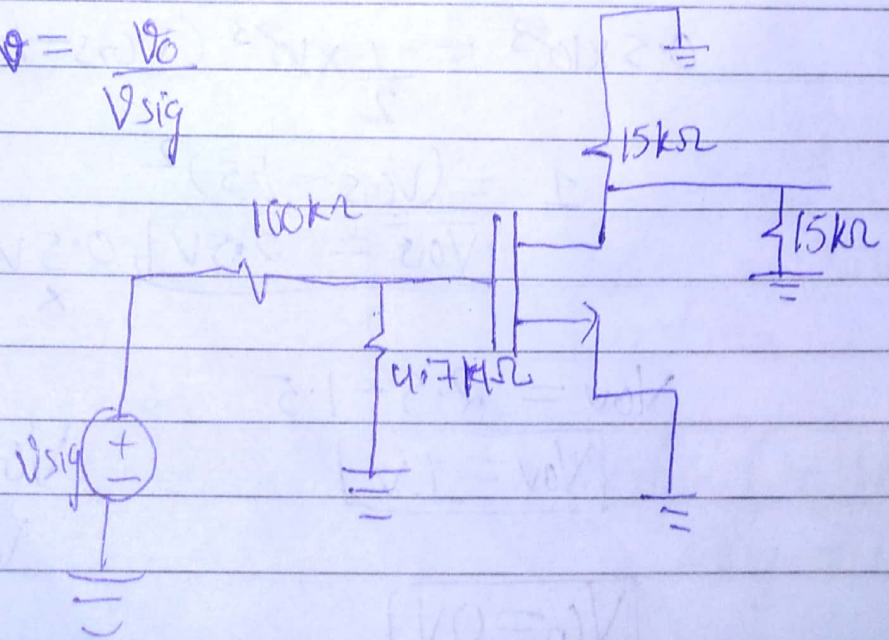 v = Vo
Vsig
15kΩ
100kΩ
15kΩ
4.7MΩ
Vsig
+
−